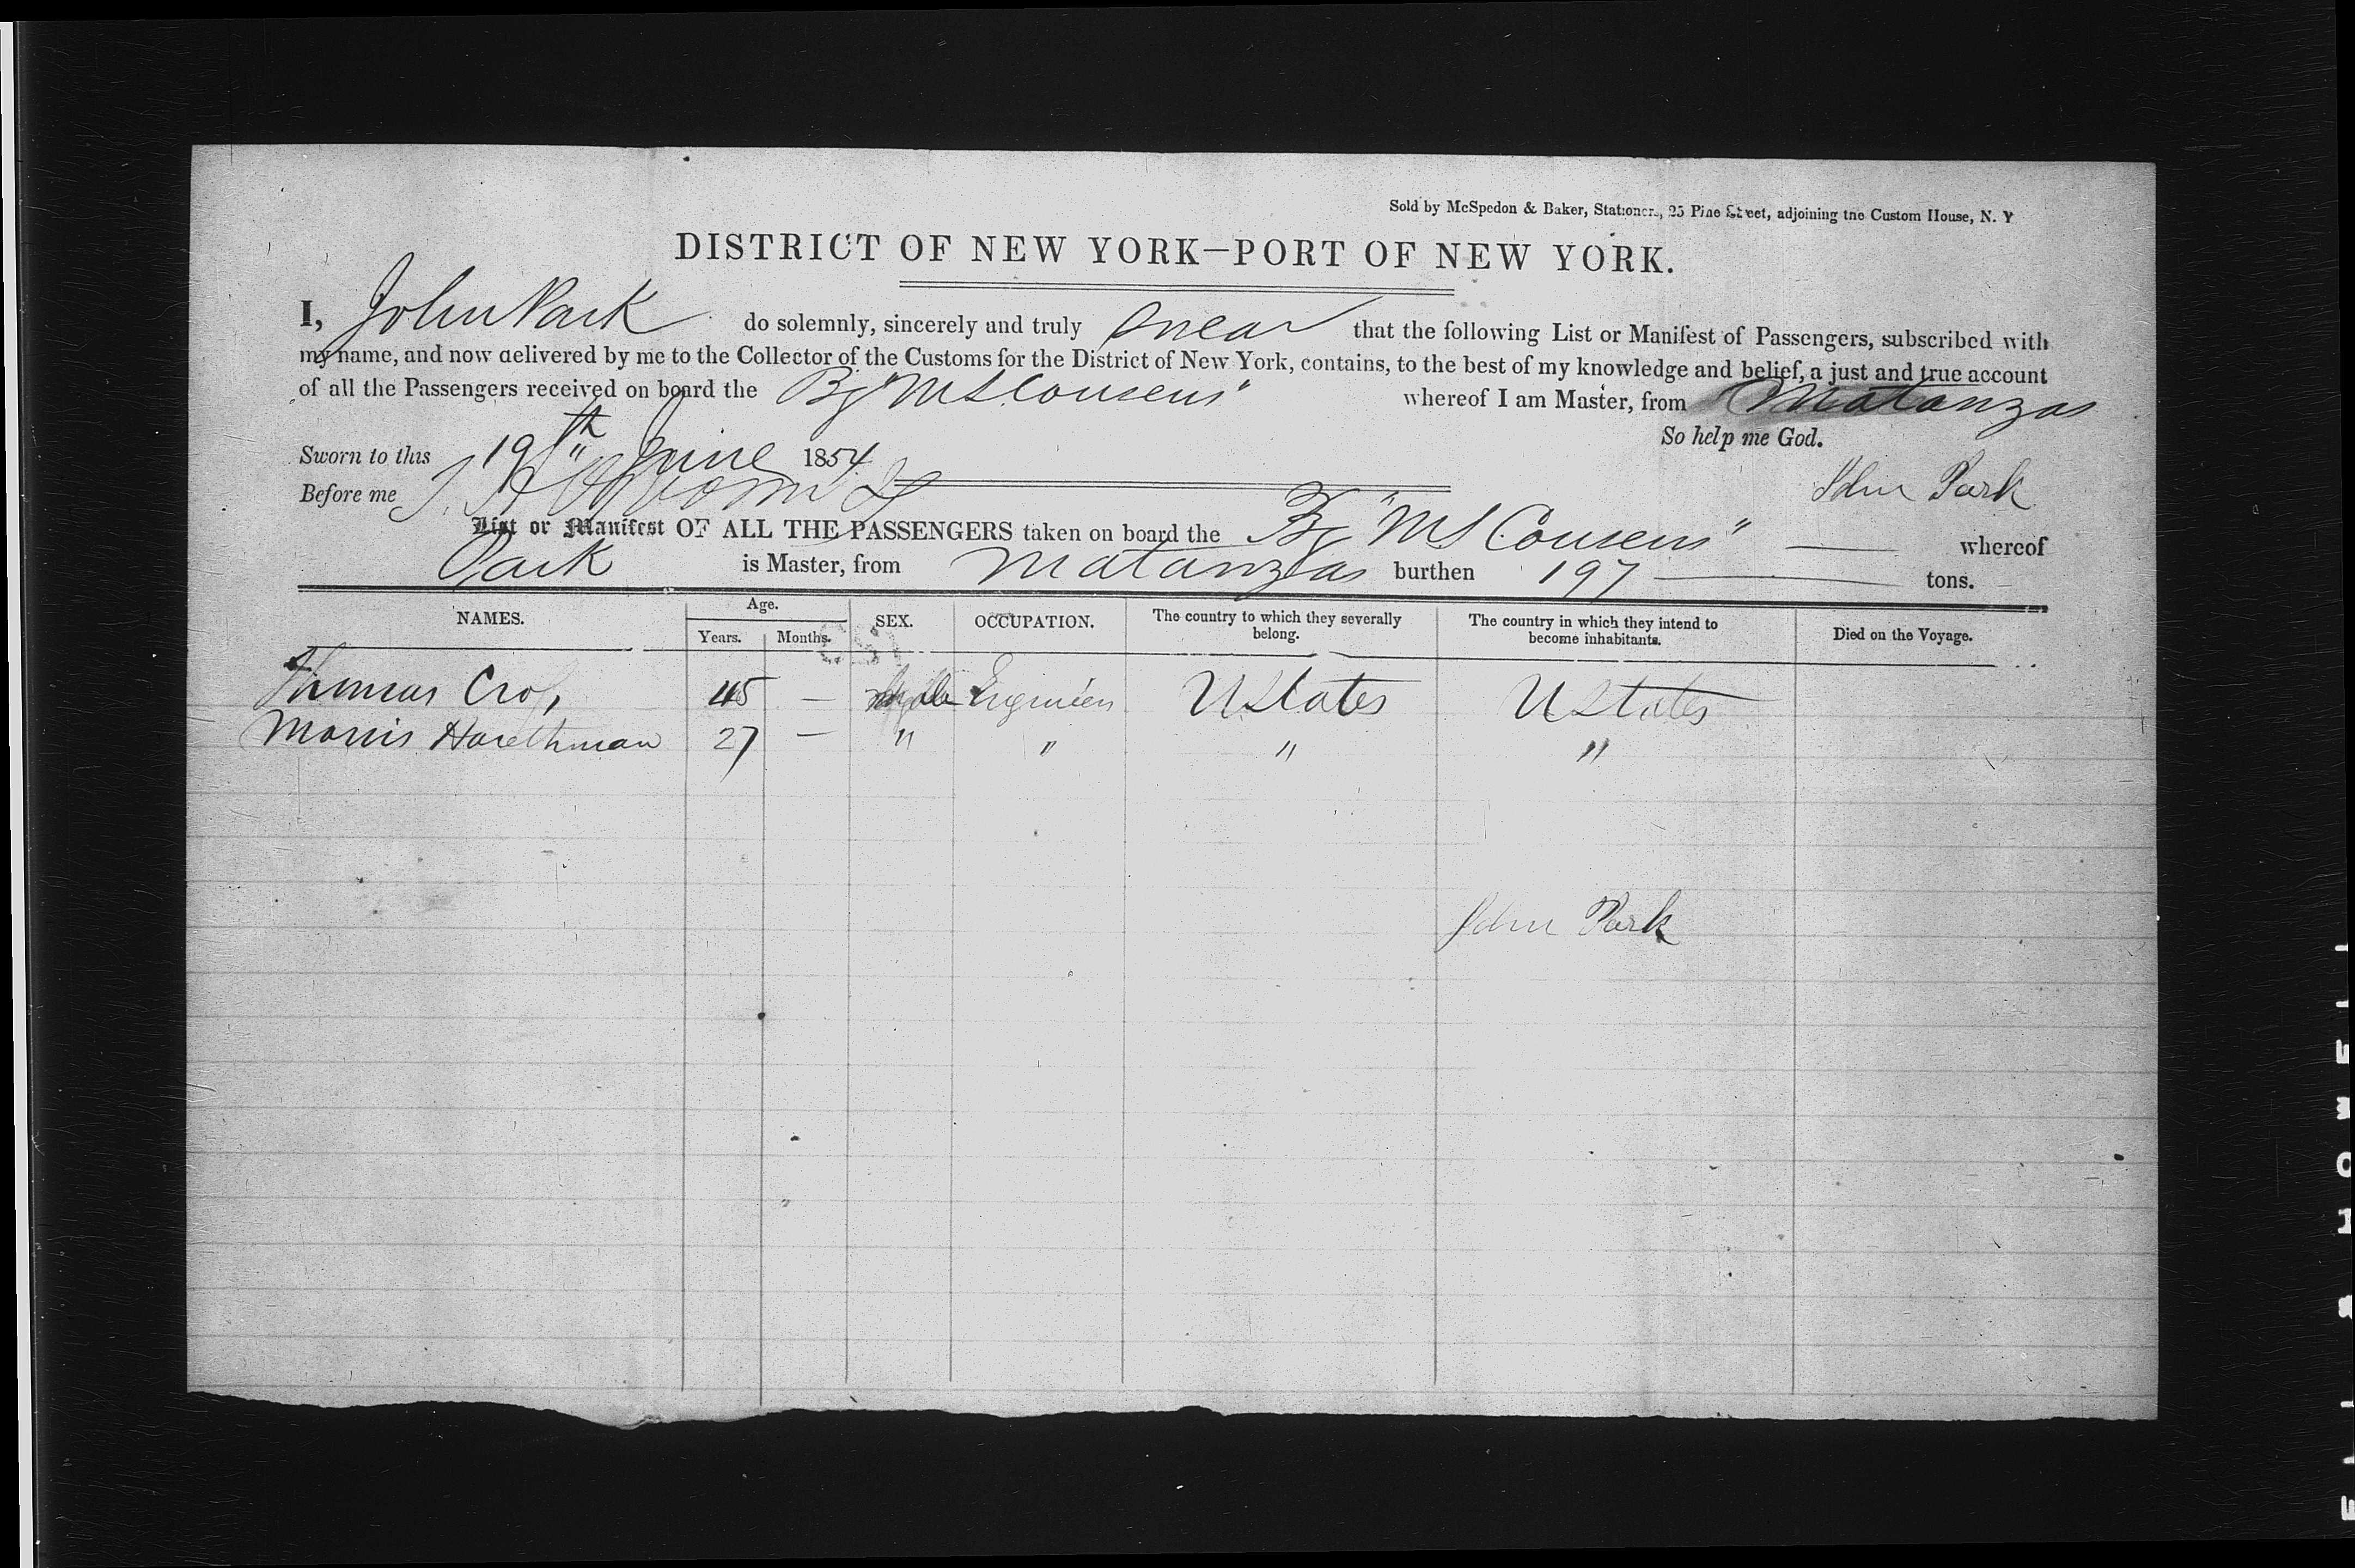 Sold by McSpedon & Baker, Stationers, 25 Pine Street, adjoining the Custom House, N. Y
DISTRICT OF NEW YORK—PORT OF NEW YORK.
I, John Park do solemnly, sincerely and truly swear that the following List or Manifest of Passengers, subscribed with
my name, and now delivered by me to the Collector of the Customs for the District of New York, contains, to the best of my knowledge and belief, a just and true account
of all the Passengers received on board the Bg "M S Cousens" whereof I am Master, from Matanzas
So help me God.
Sworn to this 19th June 1854
Before me
John Park
List or Manifest OF ALL THE PASSENGERS taken on board the Bg "M S Cousens" — whereof
Park is Master, from Matanzas burthen 197 — tons.
NAMES. Age. Years. Months. SEX. OCCUPATION. The country to which they severally belong. The country in which they intend to become inhabitants. Died on the Voyage.
Thomas 45 — Male Engineer U States U States
Morris 27 — " " " "
John Park